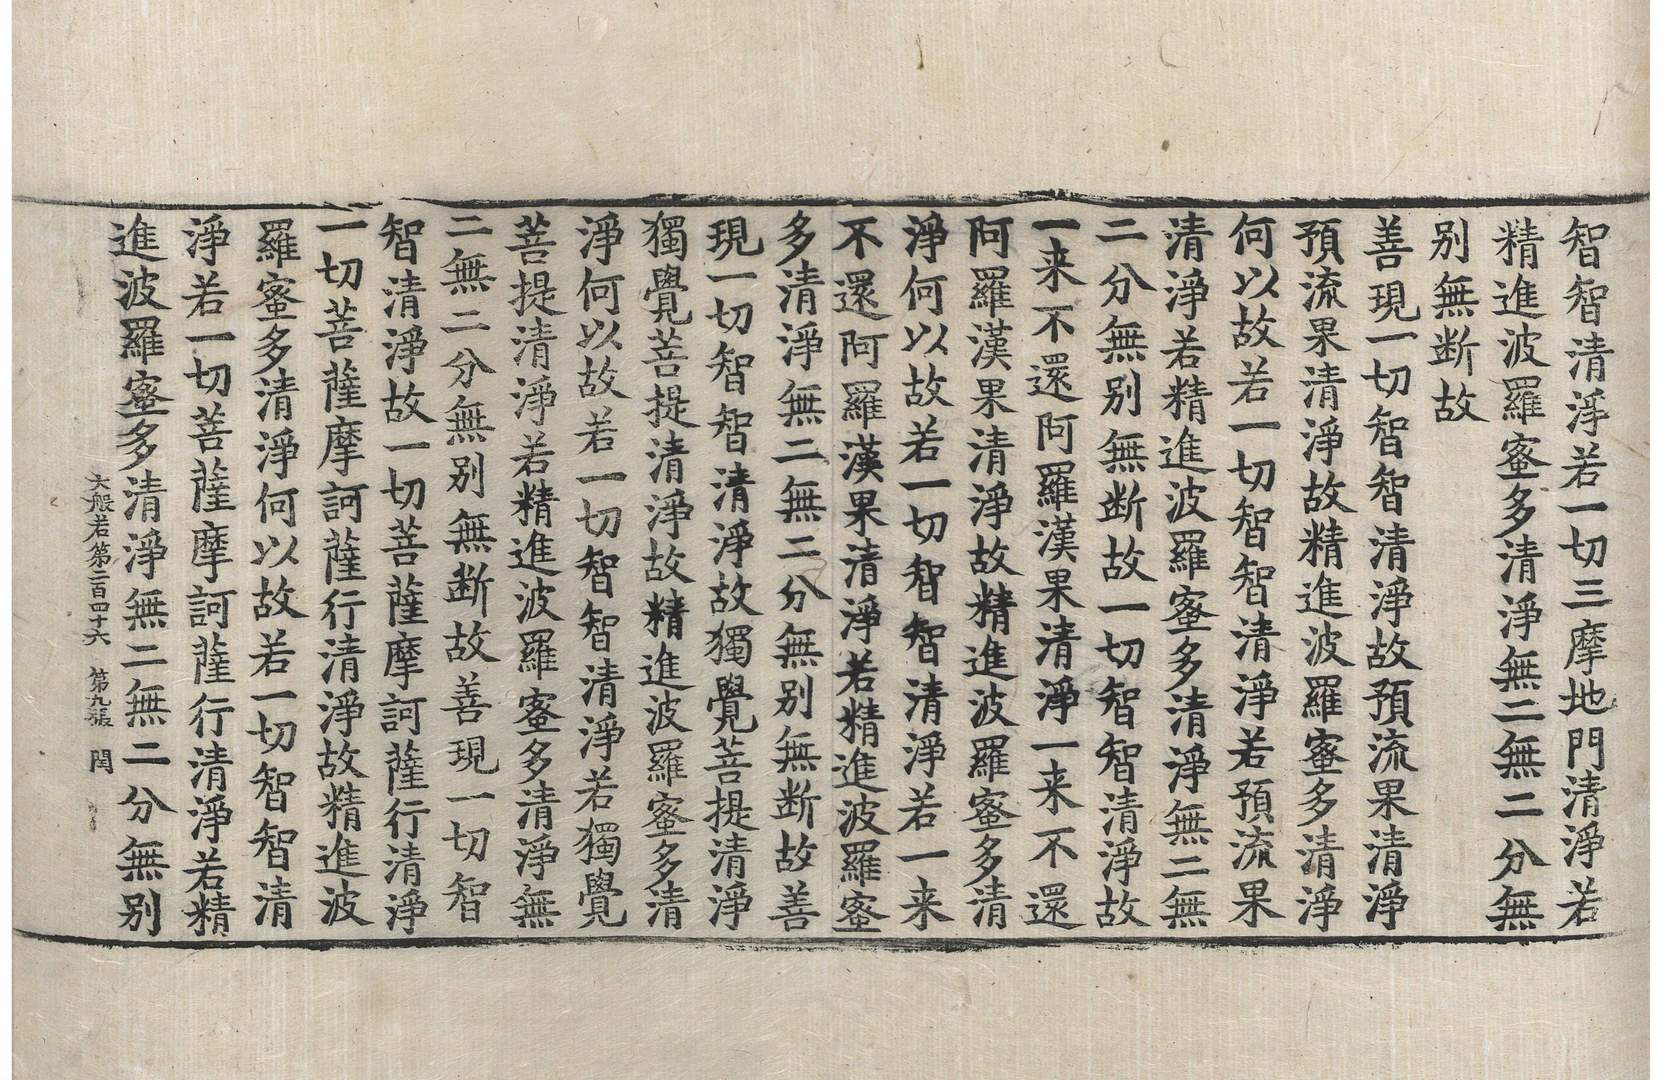 智智清淨若一切三摩地門清淨若
精進波羅蜜多清淨無二無二分無
別無断故
善現一切智智清淨故預流果清淨
預流果清淨故精進波羅蜜多清淨
何以故若一切智智清淨若預流果
清淨若精進波羅蜜多清淨無二無
二分無別無断故一切智智清淨故
一来不還阿羅漢果清淨一来不還
阿羅漢果清淨故精進波羅蜜多清
淨何以故若一切智智清淨若一来
不還阿羅漢果清淨若精進波羅蜜
多清淨無二無二分無別無断故善
現一切智智清淨故獨覺菩提清淨
獨覺菩提清淨故精進波羅蜜多清
淨何以故若一切智智清淨若獨覺
菩提清淨若精進波羅蜜多清淨無
二無二分無別無断故善現一切智
智清淨故一切菩薩摩訶薩行清淨
一切菩薩摩訶薩行清淨故精進波
羅蜜多清淨何以故若一切智智清
淨若一切菩薩摩訶薩行清淨若精
進波羅蜜多清淨無二無二分無別
大般若第二百四十六 第九張